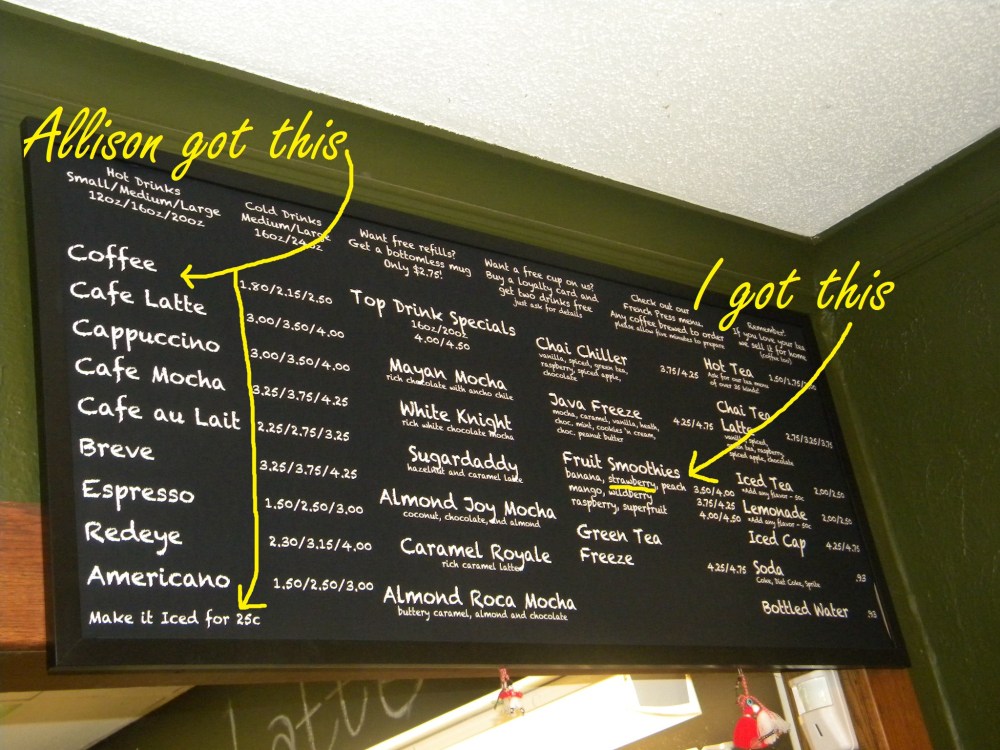 Allison got this
I got this
Hot Drinks
Small/Medium/Large
12oz/16oz/20oz
Cold Drinks
Medium/Large
16oz/24oz
Want free refills?
Get a bottomless mug
Only $2.75!
Want a free cup on us?
Buy a loyalty card and
get two drinks free
just ask for details
Check out our
French Press menu.
Any coffee brewed to order
please allow five minutes to prepare
Remember
If you love your tea
we sell it for home
(coffee too)
Coffee 1.80/2.15/2.50
Cafe Latte 3.00/3.50/4.00
Cappuccino 3.00/3.50/4.00
Cafe Mocha 3.25/3.75/4.25
Cafe au Lait 2.25/2.75/3.25
Breve 3.25/3.75/4.25
Espresso 1.50/2.50/3.00
Redeye 2.30/3.15/4.00
Americano 1.50/2.50/3.00
Make it Iced for 25c
Top Drink Specials
16oz/20oz
4.00/4.50
Mayan Mocha
rich chocolate with ancho chile
White Knight
rich white chocolate mocha
Sugardaddy
hazelnut and caramel latte
Almond Joy Mocha
coconut, chocolate, and almond
Caramel Royale
rich caramel latte
Almond Roca Mocha
buttery caramel, almond and chocolate
Chai Chiller 3.75/4.25
vanilla, spiced, green tea,
raspberry, spiced apple,
chocolate
Java Freeze 4.25/4.75
mocha, caramel, vanilla, heath,
choc. mint, cookies 'n cream,
choc. peanut butter
Fruit Smoothies
banana, strawberry, peach 3.50/4.00
mango, wildberry 3.75/4.25
raspberry, superfruit 4.00/4.50
Green Tea
Freeze 4.25/4.75
Hot Tea 1.50/1.75/
Ask for our tea menu
of over 35 kinds!
Chai Tea
Latte 2.75/3.25/3.75
vanilla, spiced,
green tea, raspberry,
spiced apple, chocolate
Iced Tea 2.00/2.50
Add any flavor - 50c
Lemonade 2.00/2.50
Add any flavor - 50c
Iced Cap 4.25/4.75
Soda .93
Coke, Diet Coke, Sprite
Bottled Water .93
Latte